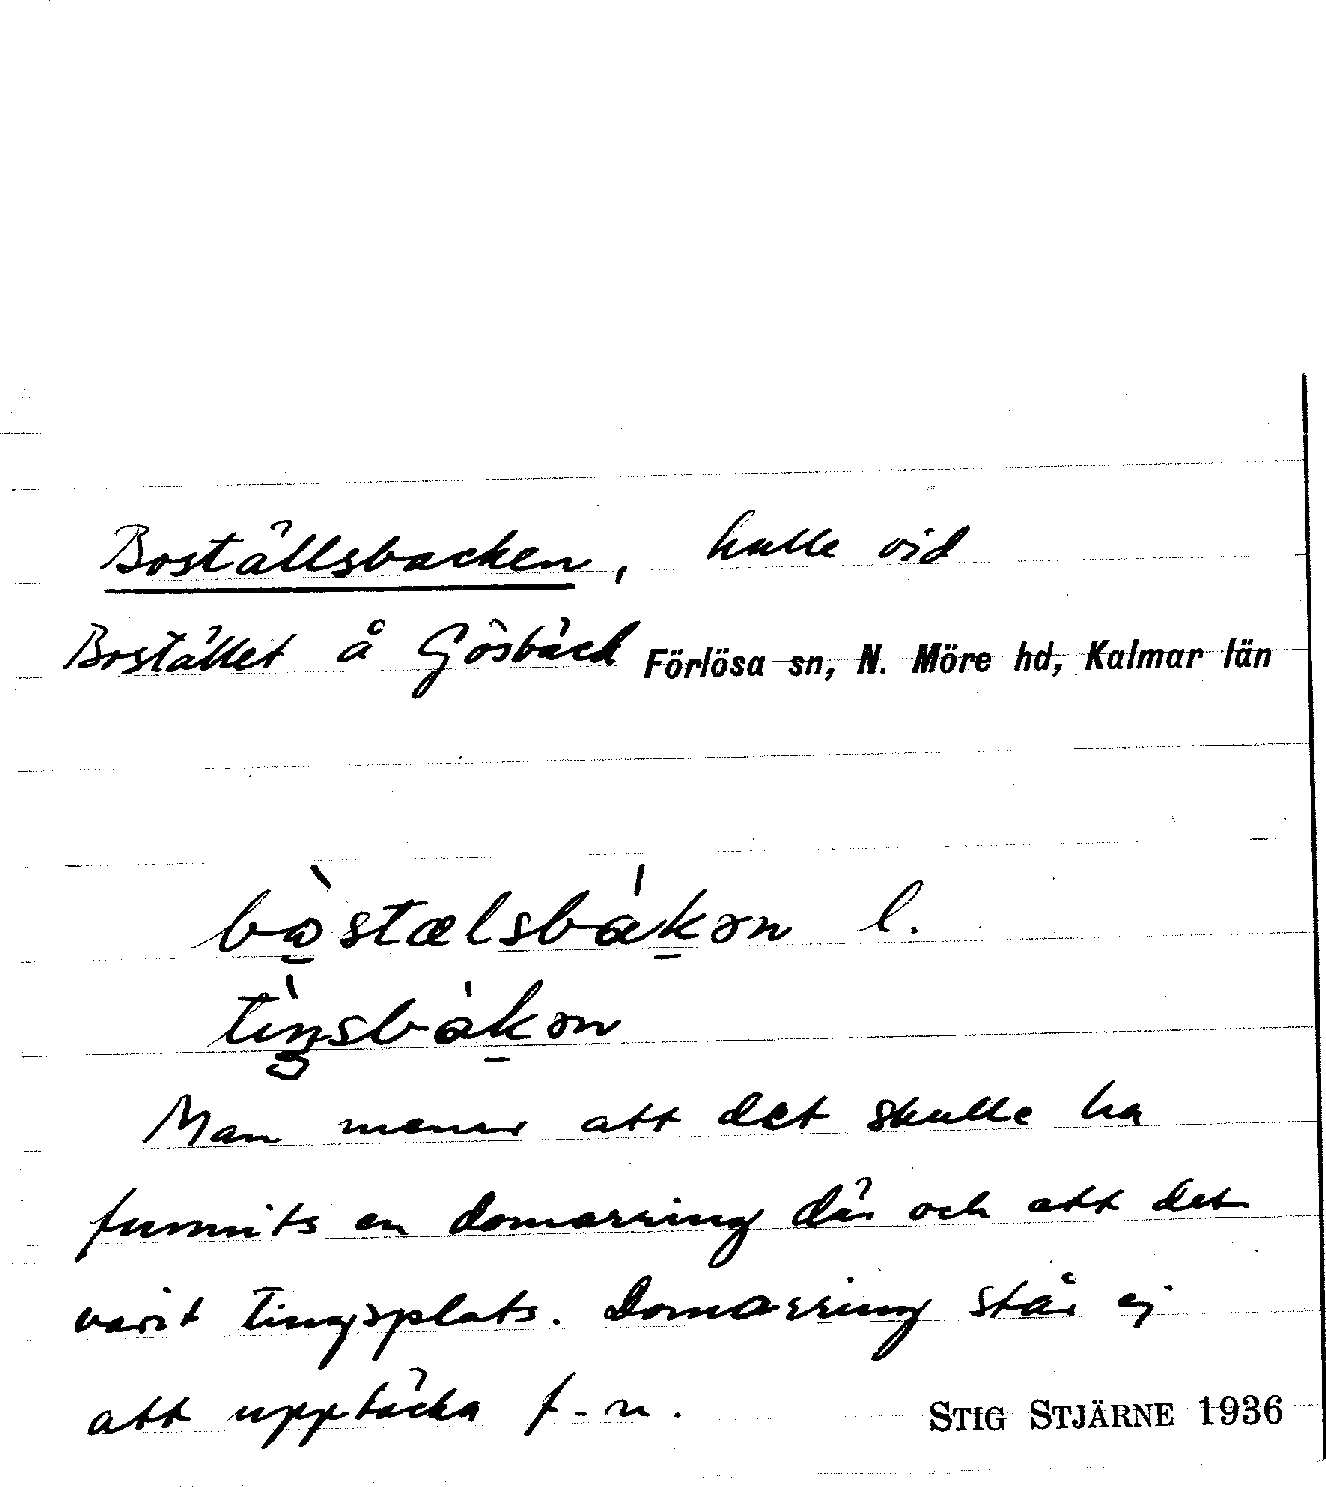 Boställsbacken, kulle vid
Bostället å Gösbäck Förlösa sn, N. Möre hd, Kalmar län
bòstælsbákən l.
tìŋsbákən
Man menar att det skulle ha
funnits en domarring där och att det
varit tingsplats. Domarring står ej
att upptäcka f-n.
STIG STJÄRNE 1936